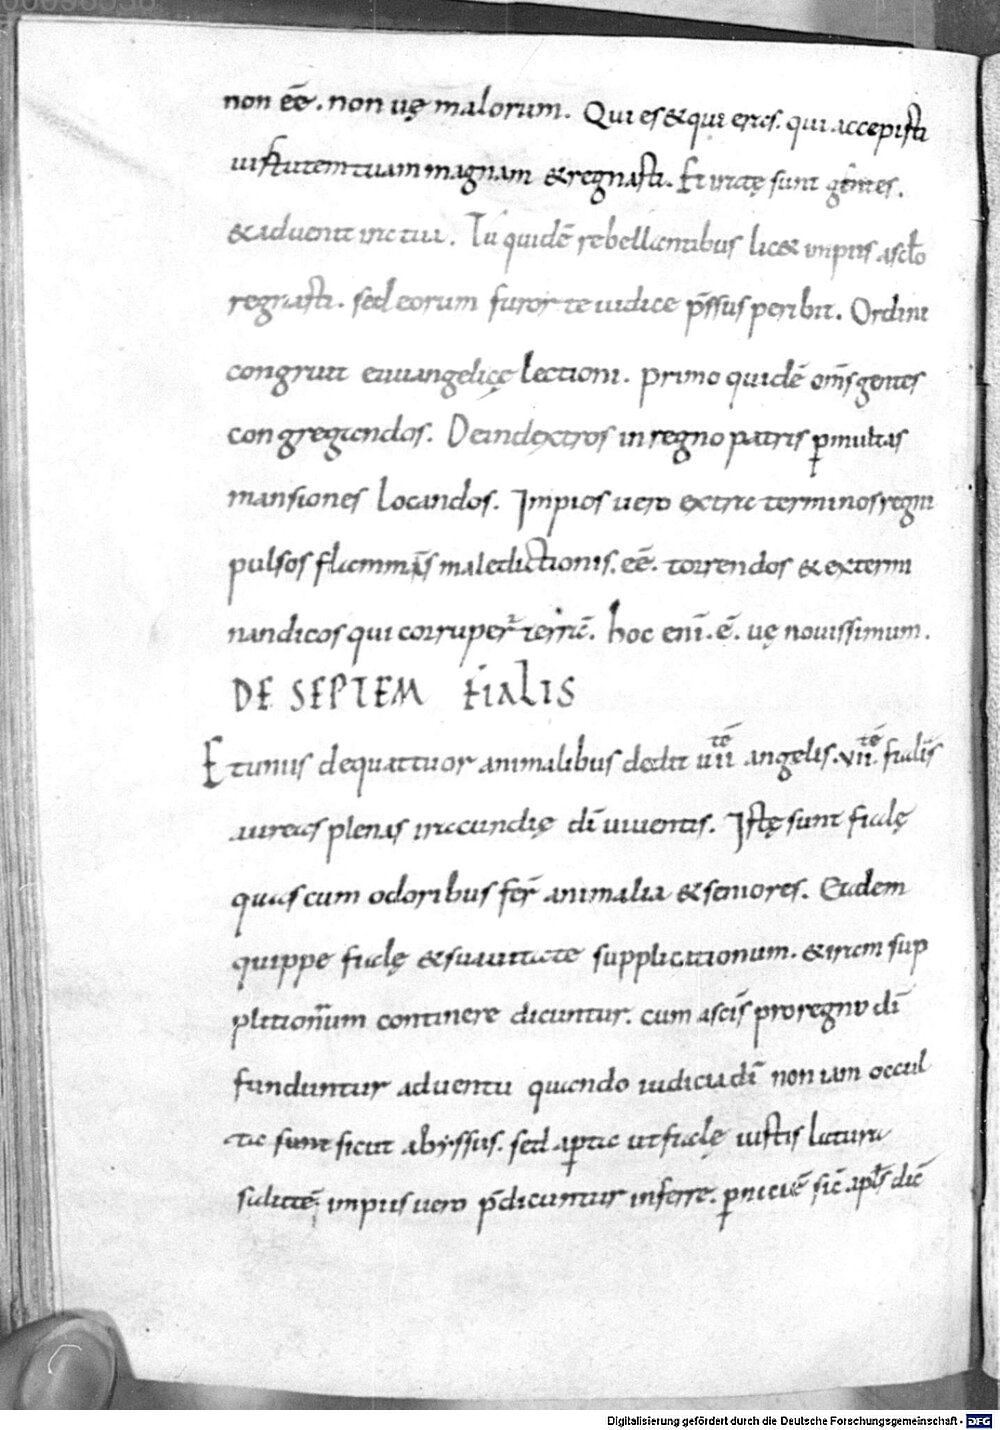 non ēē. non uę malorum. Qui es & qui eras. qui accepisti
uirtutem tuam magnam & regnasti. Et iratę sunt gentes.
& aduenit ira tua. Tu quidē rebellantibus licet impiis a sclo
regnasti. sed eorum furor te iudice pssus peribit. Ordini
congruit euuangelicę lectioni. primo quidē oms gentes
congregandas. Dein dextros in regno patris p multas
mansiones locandos. Impios uero extra terminos regni
pulsos flammas maledictionis. ēē. torrendos & extermi
nandicos qui corruper terrā. hoc enī. ē. uę nouissimum.
DE SEPTEM FIALIS
Et unus de quattuor animalibus dedit uii tē angelis. vii. tē fialis
aureas plenas iracundię dī uiuentis. Istę sunt fialę
quas cum odoribus fer animalia & seniores. Eadem
quippe fialę & suauitate supplicationum. & iram sup
plitionum continere dicuntur. cum a scis pro regno dī
funduntur aduentu quando iudicia dī non iam occul
ta sunt sicut abyssus. sed aptae ut fialę iustis latura
salutē. impiis uero pdicuntur inferre. pniciē sic apls dic